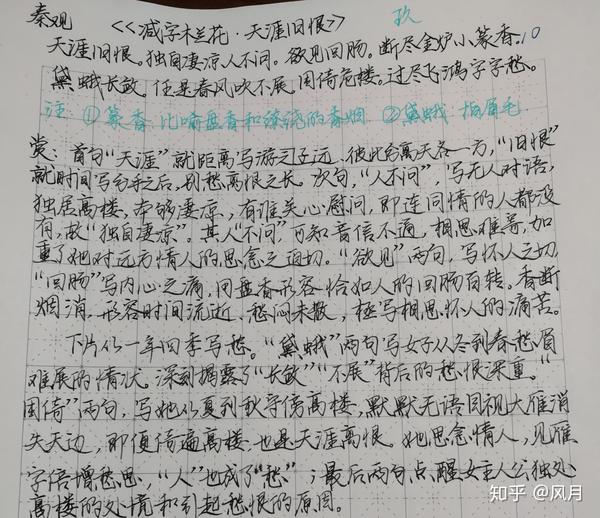 秦观 《减字木兰花·天涯旧恨》 玖
天涯旧恨。独自凄凉人不问。欲见回肠。断尽金炉小篆香。10
黛蛾长敛。任是春风吹不展。困倚危楼。过尽飞鸿字字愁。
注 ①篆香 比喻盘香和缭绕的香烟 ②黛蛾 指眉毛
赏: 首句“天涯”就距离写游子之远,彼此各离天各一方,“旧恨”
就时间写分手之后,别愁离恨之长。次句,“人不问”,写无人对语,
独居高楼,本够凄凉,有谁关心慰问,即连同情的人都没
有,故“独自凄凉”。其人“不问”,可知音信不通,相思难寄,加
重了她对远方情人的思念之迫切。“欲见”两句,写怀人之切,
“回肠”写内心之痛,用盘香形容恰如人的回肠百转。香断
烟消,形容时间流逝,愁闷未散,极写相思怀人的痛苦。
下片以一年四季写愁。“黛蛾”两句写女子从冬到春愁眉
难展的情状。深刻揭露了“长敛”“不展”背后的愁恨深重。“
困倚”两句,写她从夏到秋守傍高楼,默默无语目视大雁消
失天边,即便倚遍高楼,也是天涯离恨。她思念情人,见雁
字倍增愁思,“人”也成了“愁”;最后两句点醒女主人公独处
高楼的处境和引起愁恨的原因。
知乎 @风月